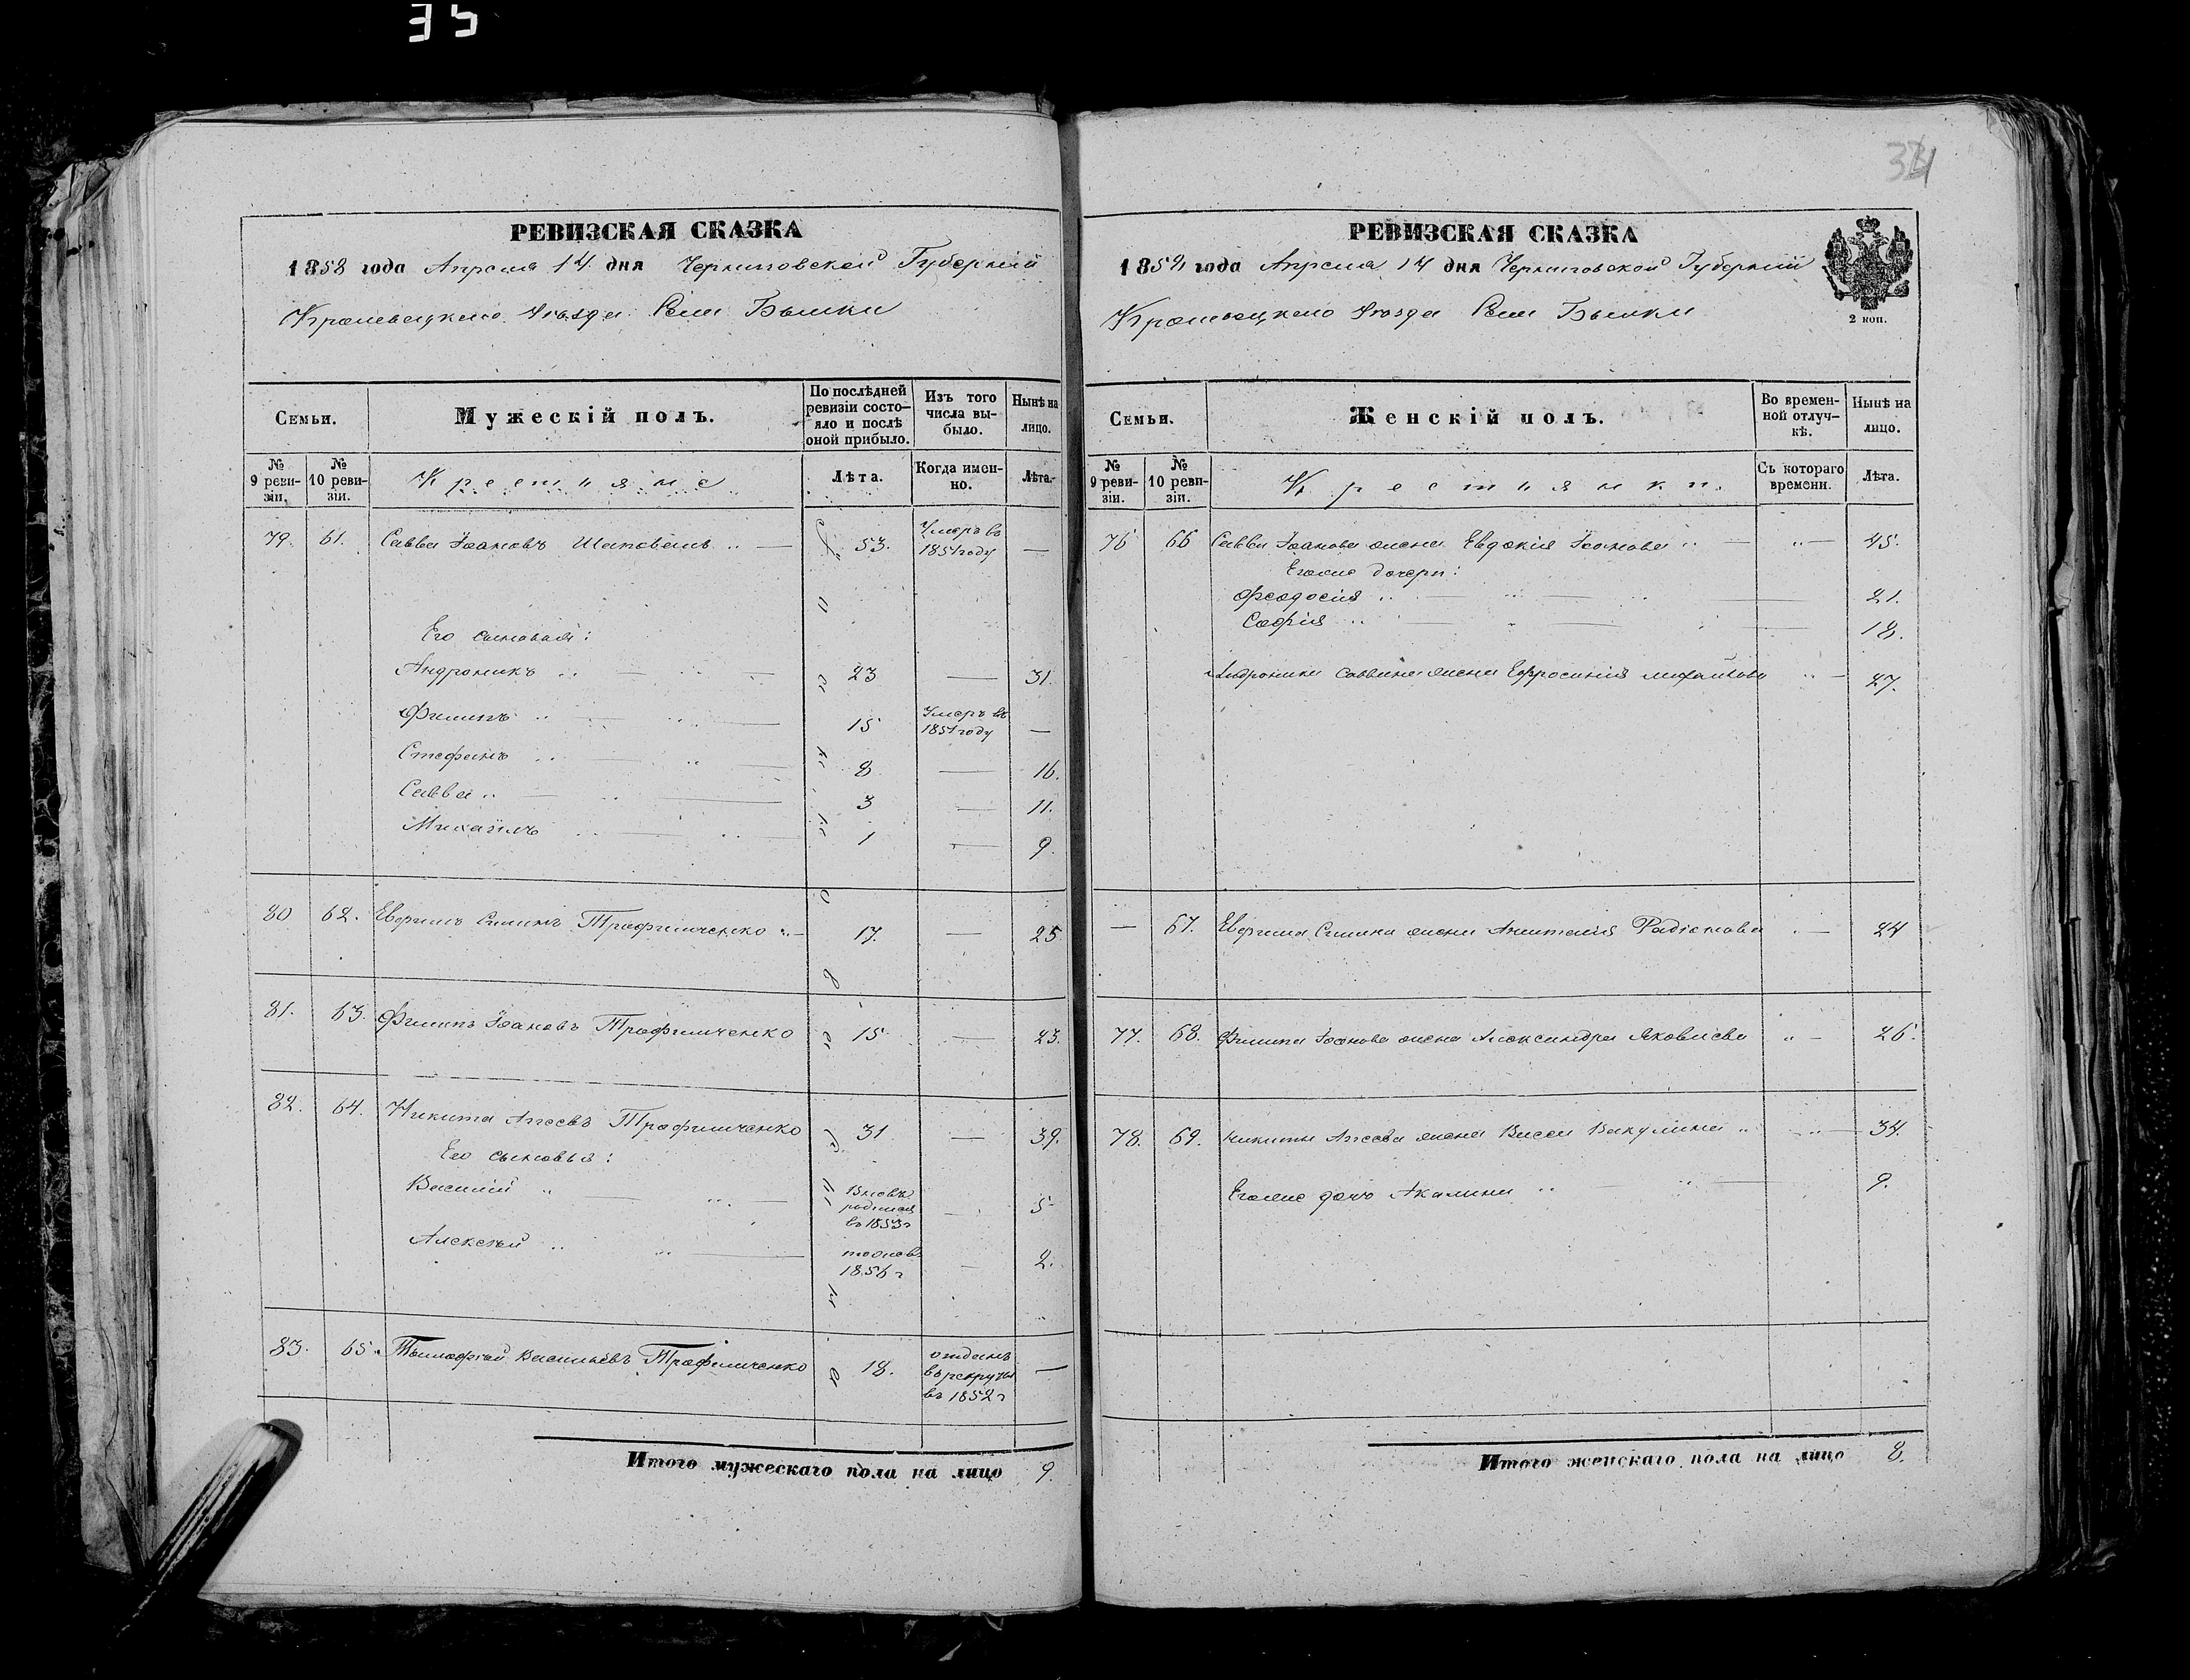 35
34
РЕВИЗСКАЯ СКАЗКА
1858 года Апреля 14 дня Черниговской Губернии
Кролевецкого Уезда Села Быстрики
Семьи.
Мужескій полъ.
По послѣдней
ревизіи состо-
яло и послѣ
оной прибыло.
Изъ того
числа вы-
было.
Нынѣ на
лицо.
№
9 реви-
зіи.
№
10 реви-
зіи.
Крестьяне
Лѣта.
Когда имен-
но.
Лѣта.
79. 61. Савва Іоановъ Шаповалъ 53. Умеръ въ
1851 году —
Его сыновья:
Андроникъ 23 — 31.
Филипъ 15 Умеръ въ
1851 году —
Стефанъ 8 — 16.
Савва 3 — 11.
Михаилъ 1 — 9.
80 62. Евфимъ Симинъ Трофимченко 17. — 25
81. 63. Филипъ Іоановъ Трофимченко 15 — 23.
82. 64. Никита Агеевъ Трофимченко 31 — 39.
Его сыновья:
Василий Вновь
родился
въ 1853 г — 5
Алексѣй тоже въ
1856 г — 2.
83. 65. Тимофей Васильевъ Трофимченко 18. отданъ
въ рекруты
въ 1852 г —
Итого мужескаго пола на лицо 9.
РЕВИЗСКАЯ СКАЗКА
1858 года Апреля 14 дня Черниговской Губернии
Кролевецкого Уезда Села
2 коп.
Семьи.
Женскій полъ.
Во времен-
ной отлуч-
кѣ.
Нынѣ на
лицо.
№
9 реви-
зіи.
№
10 реви-
зіи.
Крестьянки.
Съ котораго
времени.
Лѣта.
76 66 Саввы Іоанова жена Евдокія Іоанова — 45.
Его же дочери:
Феодосия 21.
София 18.
Андроника Саввина жена Ефросиния Михайлова — 27.
— 67. Евфима Симина жена Радіонова — 24
77. 68. Филипа Іоанова жена Александра Яковлева — 26.
78. 69. Никиты Агеева жена Васса Вакулина — 34.
Его же дочь Акилина 9.
Итого женскаго пола на лицо 8.